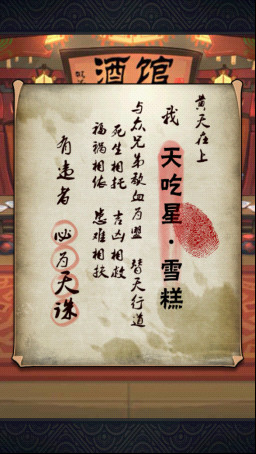 酒馆
黄天在上
我 天吃星·雪糕
与众兄弟歃血为盟 替天行道
死生相托 吉凶相救
福祸相依 患难相扶
有违者 必为天诛